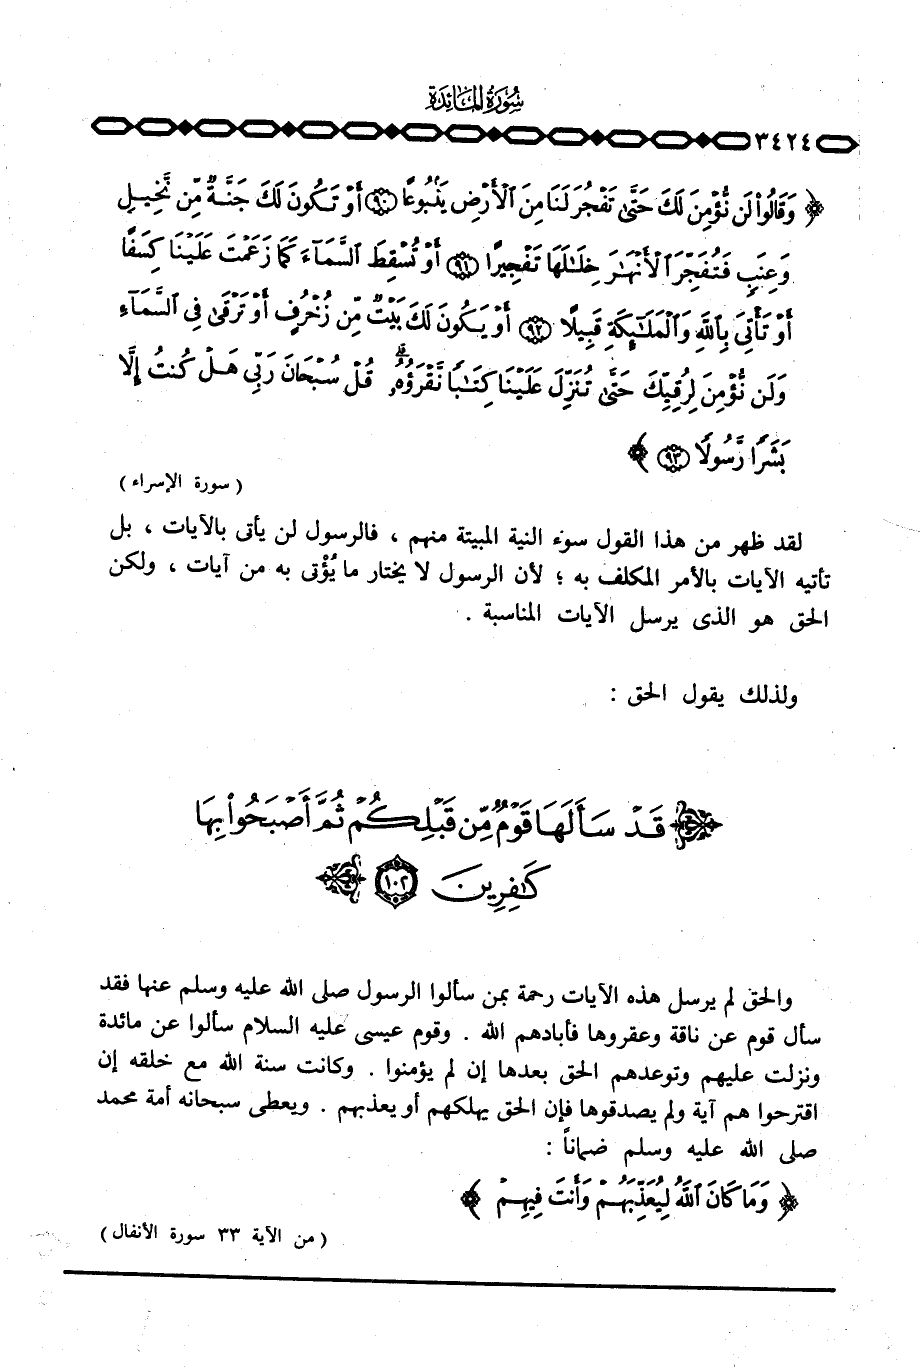 سُورَةُ المَائِدَة
٣٤٢٤
﴿ وَقَالُوا۟ لَن نُّؤْمِنَ لَكَ حَتَّىٰ تَفْجُرَ لَنَا مِنَ ٱلْأَرْضِ يَنۢبُوعًا ٩٠ أَوْ تَكُونَ لَكَ جَنَّةٌ مِّن نَّخِيلٍ
وَعِنَبٍ فَتُفَجِّرَ ٱلْأَنْهَٰرَ خِلَٰلَهَا تَفْجِيرًا ٩١ أَوْ تُسْقِطَ ٱلسَّمَآءَ كَمَا زَعَمْتَ عَلَيْنَا كِسَفًا
أَوْ تَأْتِىَ بِٱللَّهِ وَٱلْمَلَٰٓئِكَةِ قَبِيلًا ٩٢ أَوْ يَكُونَ لَكَ بَيْتٌ مِّن زُخْرُفٍ أَوْ تَرْقَىٰ فِى ٱلسَّمَآءِ
وَلَن نُّؤْمِنَ لِرُقِيِّكَ حَتَّىٰ تُنَزِّلَ عَلَيْنَا كِتَٰبًا نَّقْرَؤُهُۥ ۗ قُلْ سُبْحَانَ رَبِّى هَلْ كُنتُ إِلَّا
بَشَرًا رَّسُولًا ٩٣ ﴾
( سورة الإسراء )
لقد ظهر من هذا القول سوء النية المبيتة منهم ، فالرسول لن يأتى بالآيات ، بل
تأتيه الآيات بالأمر المكلف به ؛ لأن الرسول لا يختار ما يُؤْتى به من آيات ، ولكن
الحق هو الذى يرسل الآيات المناسبة .
ولذلك يقول الحق :
﴿ قَدْ سَأَلَهَا قَوْمٌ مِّن قَبْلِكُمْ ثُمَّ أَصْبَحُوا۟ بِهَا
كَٰفِرِينَ ١٠٢ ﴾
والحق لم يرسل هذه الآيات رحمة بمن سألوا الرسول صلى الله عليه وسلم عنها فقد
سأل قوم عن ناقة وعقروها فأبادهم الله . وقوم عيسى عليه السلام سألوا عن مائدة
ونزلت عليهم وتوعدهم الحق بعدها إن لم يؤمنوا . وكانت سنة الله مع خلقه إن
اقترحوا هم آية ولم يصدقوها فإن الحق يهلكهم أو يعذبهم . ويعطى سبحانه أمة محمد
صلى الله عليه وسلم ضماناً :
﴿ وَمَا كَانَ ٱللَّهُ لِيُعَذِّبَهُمْ وَأَنتَ فِيهِمْ ﴾
( من الآية ٣٣ سورة الأنفال )